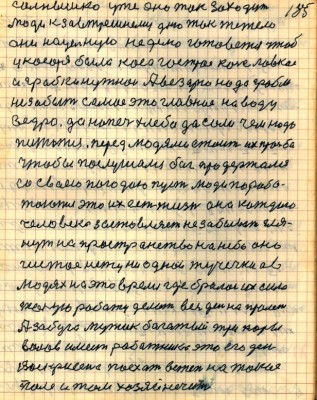 185
солнышко уже оно так заходит
люди к завтрешнему дню так тежело
они нацелную неделю готовется чтоб
у касаря была коса гострая коло ловкая
и грабки нутной А ведро надо грабли
незабыт самое это главное на воду
ведро. да напечь хлеба да сала чем надо
питатся, перед людями стоит их прозба
чтобы послушался бог продержался
со своею погодою пуст люди порабо-
тают это их ест жизн она каждого
человека заставляет незабыват гля-
нут на пространство на небо оно
чистое нету ни одной тучечки а в
людях на это время где брался их сила
тежолую работу делат вес ден на пролет
А забудо мужик багатый три пары
валов имеет работников это его дело
поехат в степ на такое
поле и там хозяйнечит